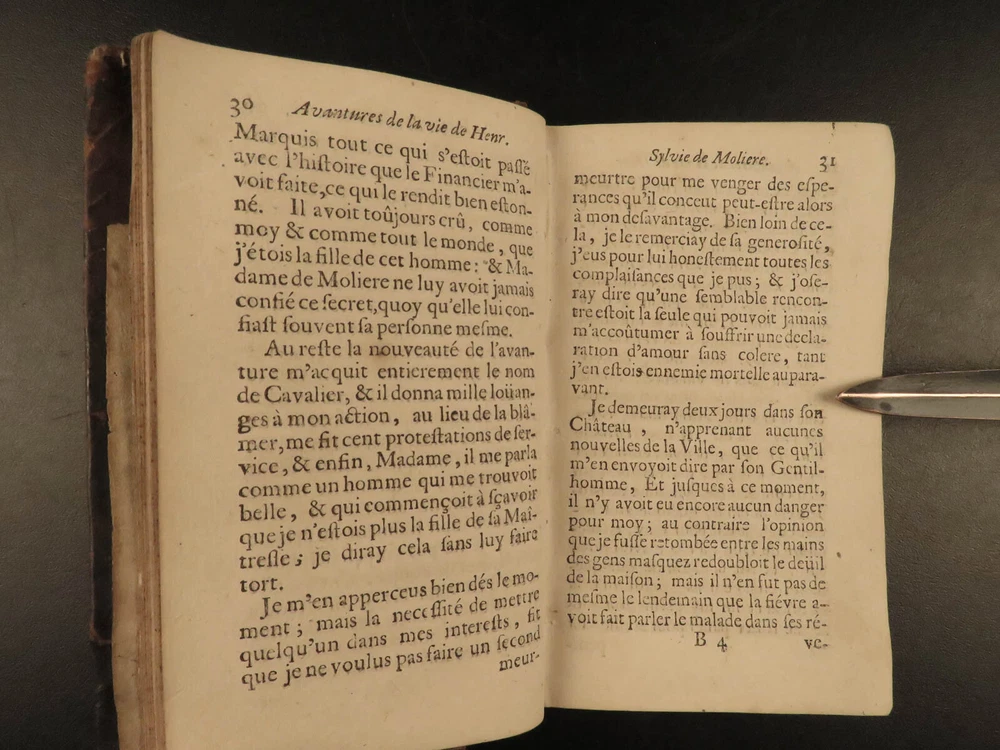 30 Avantures de la vie de Henr.
Marquis tout ce qui s'eſtoit paſſé
avec l'hiſtoire que le Financier m'a-
voit faite,ce qui le rendit bien eſton-
né. Il avoit toûjours crû, comme
moy & comme tout le monde, que
j'étois la fille de cet homme: & Ma-
dame de Moliere ne luy avoit jamais
confié ce ſecret,quoy qu'elle lui con-
fiaſt ſouvent ſa perſonne meſme.
Au reſte la nouveauté de l'avan-
ture m'acquit entierement le nom
de Cavalier, & il donna mille loüan-
ges à mon action, au lieu de la blâ-
mer,me fit cent proteſtations de ſer-
vice, & enfin, Madame, il me parla
comme un homme qui me trouvoit
belle, & qui commençoit à ſçavoir
que je n'eſtois plus la fille de ſa Maî-
treſſe; je diray cela ſans luy faire
tort.
Je m'en apperceus bien dés le mo-
ment; mais la neceſſité de mettre
quelqu'un dans mes intereſts, fit
que je ne voulus pas faire un ſecond
meur-
Sylvie de Moliere. 31
meurtre pour me venger des eſpe-
rances qu'il conceut peut-eſtre alors
à mon deſavantage. Bien loin de ce-
la, je le remerciay de ſa generoſité,
j'eus pour lui honeſtement toutes les
complaiſances que je pus; & j'oſe-
ray dire qu'une ſemblable rencon-
tre eſtoit la ſeule qui pouvoit jamais
m'accoûtumer à ſouffrir une decla-
ration d'amour ſans colere, tant
j'en eſtois ennemie mortelle aupara-
vant.
Je demeuray deux jours dans ſon
Château, n'apprenant aucunes
nouvelles de la Ville, que ce qu'il
m'en envoyoit dire par ſon Gentil-
homme, Et juſques à ce moment,
il n'y avoit eu encore aucun danger
pour moy; au contraire l'opinion
que je fuſſe retombée entre les mains
des gens maſquez redoubloit le deüil
de la maiſon; mais il n'en fut pas de
meſme le lendemain que la fiévre a-
voit fait parler le malade dans ſes ré-
B 4 ve-